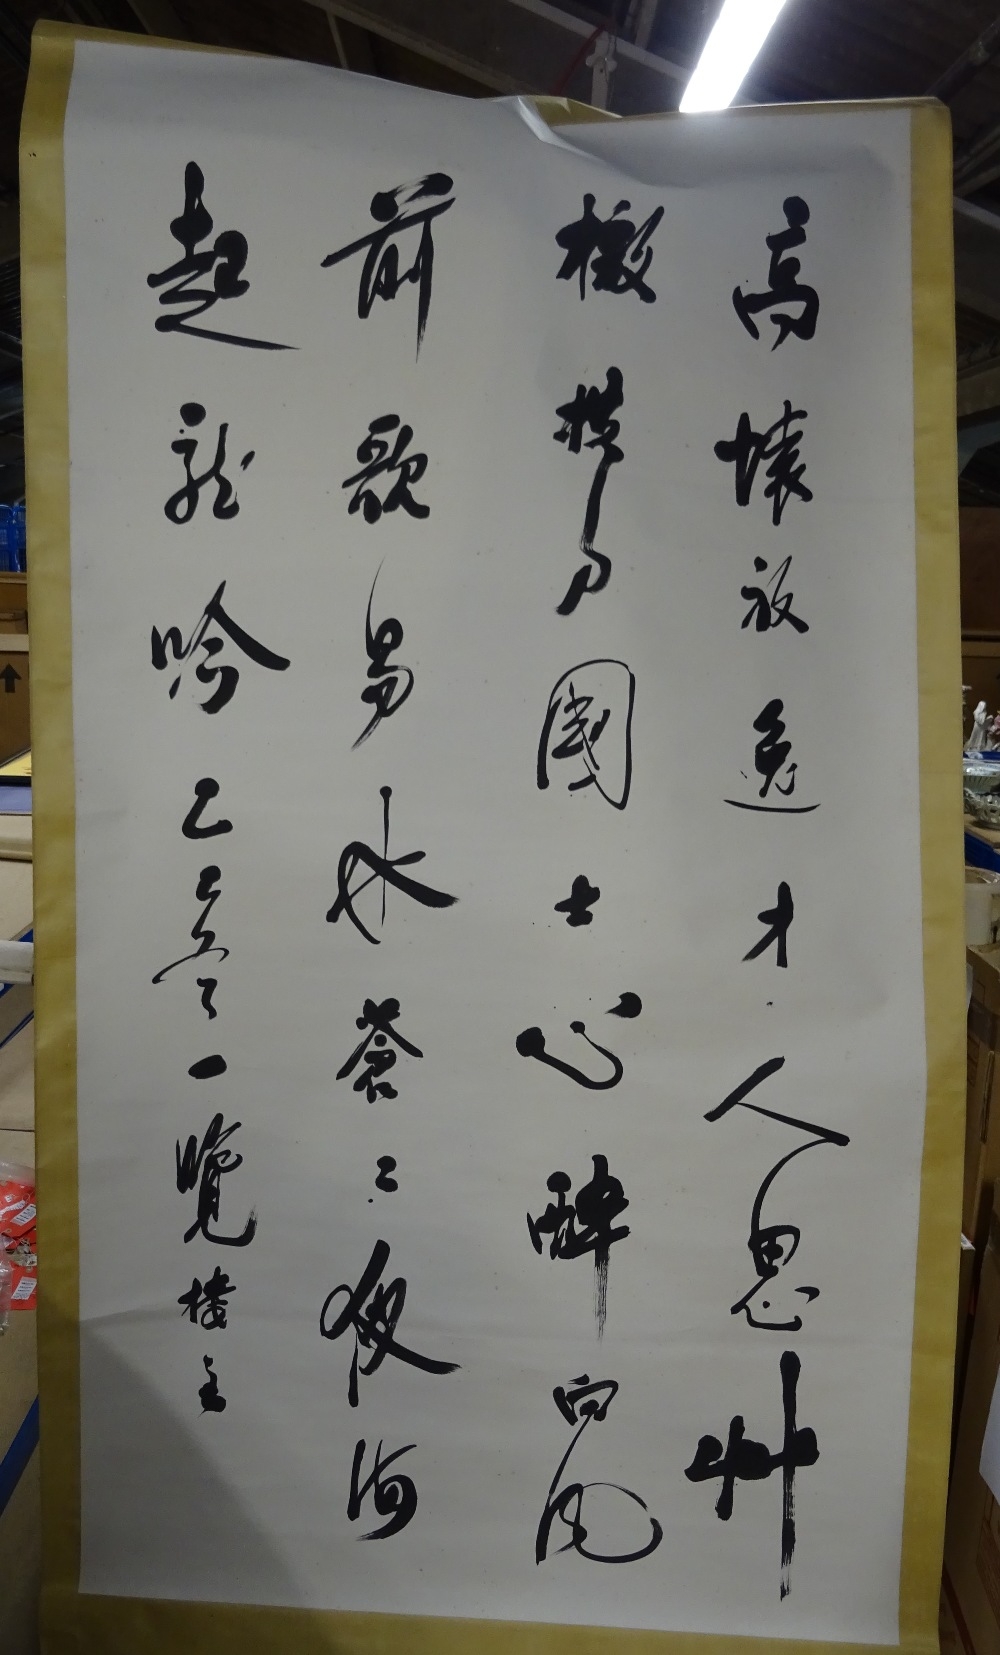 高懷放逸才人思艸
檄橫刀國士心醉向風
前歌易水蒼〻夜海
起龍吟乙亥一覽樓主